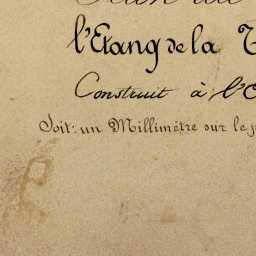 l'Etang de la
Construit à l'E
Soit: un Millimètre sur le